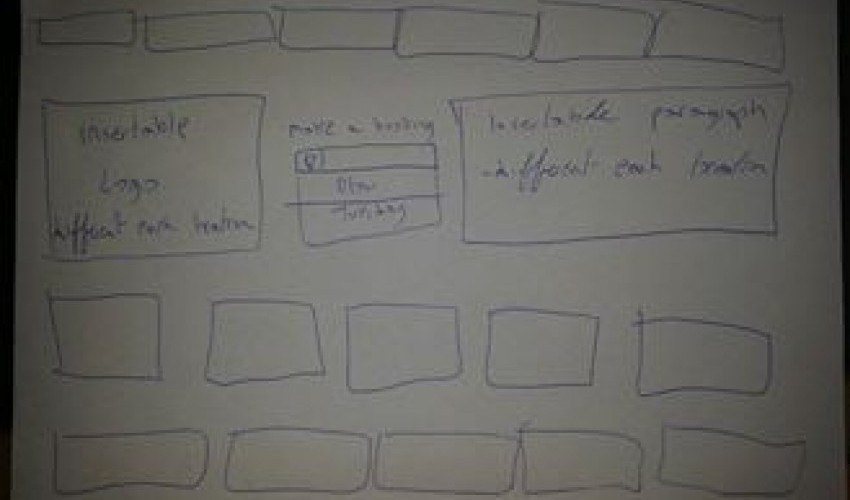 insertable
Logo
different each location
make a booking
Insertable paragraph
different each location